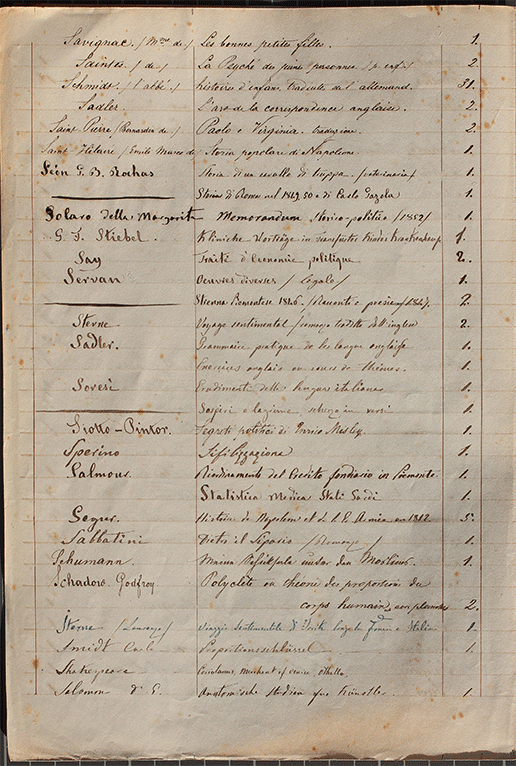 Savignac /Mme de/ Les bonnes petites filles. 1.
Saintes /de/ La Psyché des jeunes personnes /p. enf./ 2.
Schmidt /l'abbé/ histoires d'enfans traduites de l'allemand. 31.
Sadler. L'art de la correspondence anglaise. 2.
Saint Pierre /Bernardin de/ Paolo e Virginia. traduzione. 2.
Saint Hilaire /Emile Marco de/ Storia popolare di Napoleone 1.
Storia di un cavallo di truppa. /veterinaria/ 1.
Storia di Roma nel 1849 50 di Carlo Gazola 1.
Solaro della Margarita Memorandum storico-politico /1852/ 1.
G. F. Stiebel. Klinische Vorträge im 1.
Say Traité d'Economie politique 2.
Servan Oeuvres diverses /legale/ 1.
Strenna Piemontese 1846. /Racconti e poesie/ 1847. 2.
Sterne Voyage sentimental 2.
Sadler. Grammaire pratique de la langue anglaise 1.
Exercices anglais ou cours de thèmes. 1.
Soresi Erudimenti della lingua italiana 1.
Sospiri e lagrime, scherzo in versi 1.
Siotto-Pintor. Segreti politici di Enrico Misley. 1.
Sperino Sifilizzazione 1.
Salmour. Riordinamento del Credito fondiario in Piemonte. 1.
Statistica Medica Stati Sardi 1.
Segur. Histoire de Napoleon et de la G. Armée en 1812. 5.
Sabbatini /Romanzo/ 1.
Schumann. 1.
Schadow Godfroy Polyclète ou théorie des proportions du
corps humain, avec planches 2.
Sterne /Lorenzo/ Viaggio Sentimentale di Yorik lungo la Francia e Italia 1.
Smidt Carlo Proportionsschlüssel 1.
Shakespeare Coriolanus, Merchant of venice, Othello.
Salomon d' G. Anatomische Studien 1.